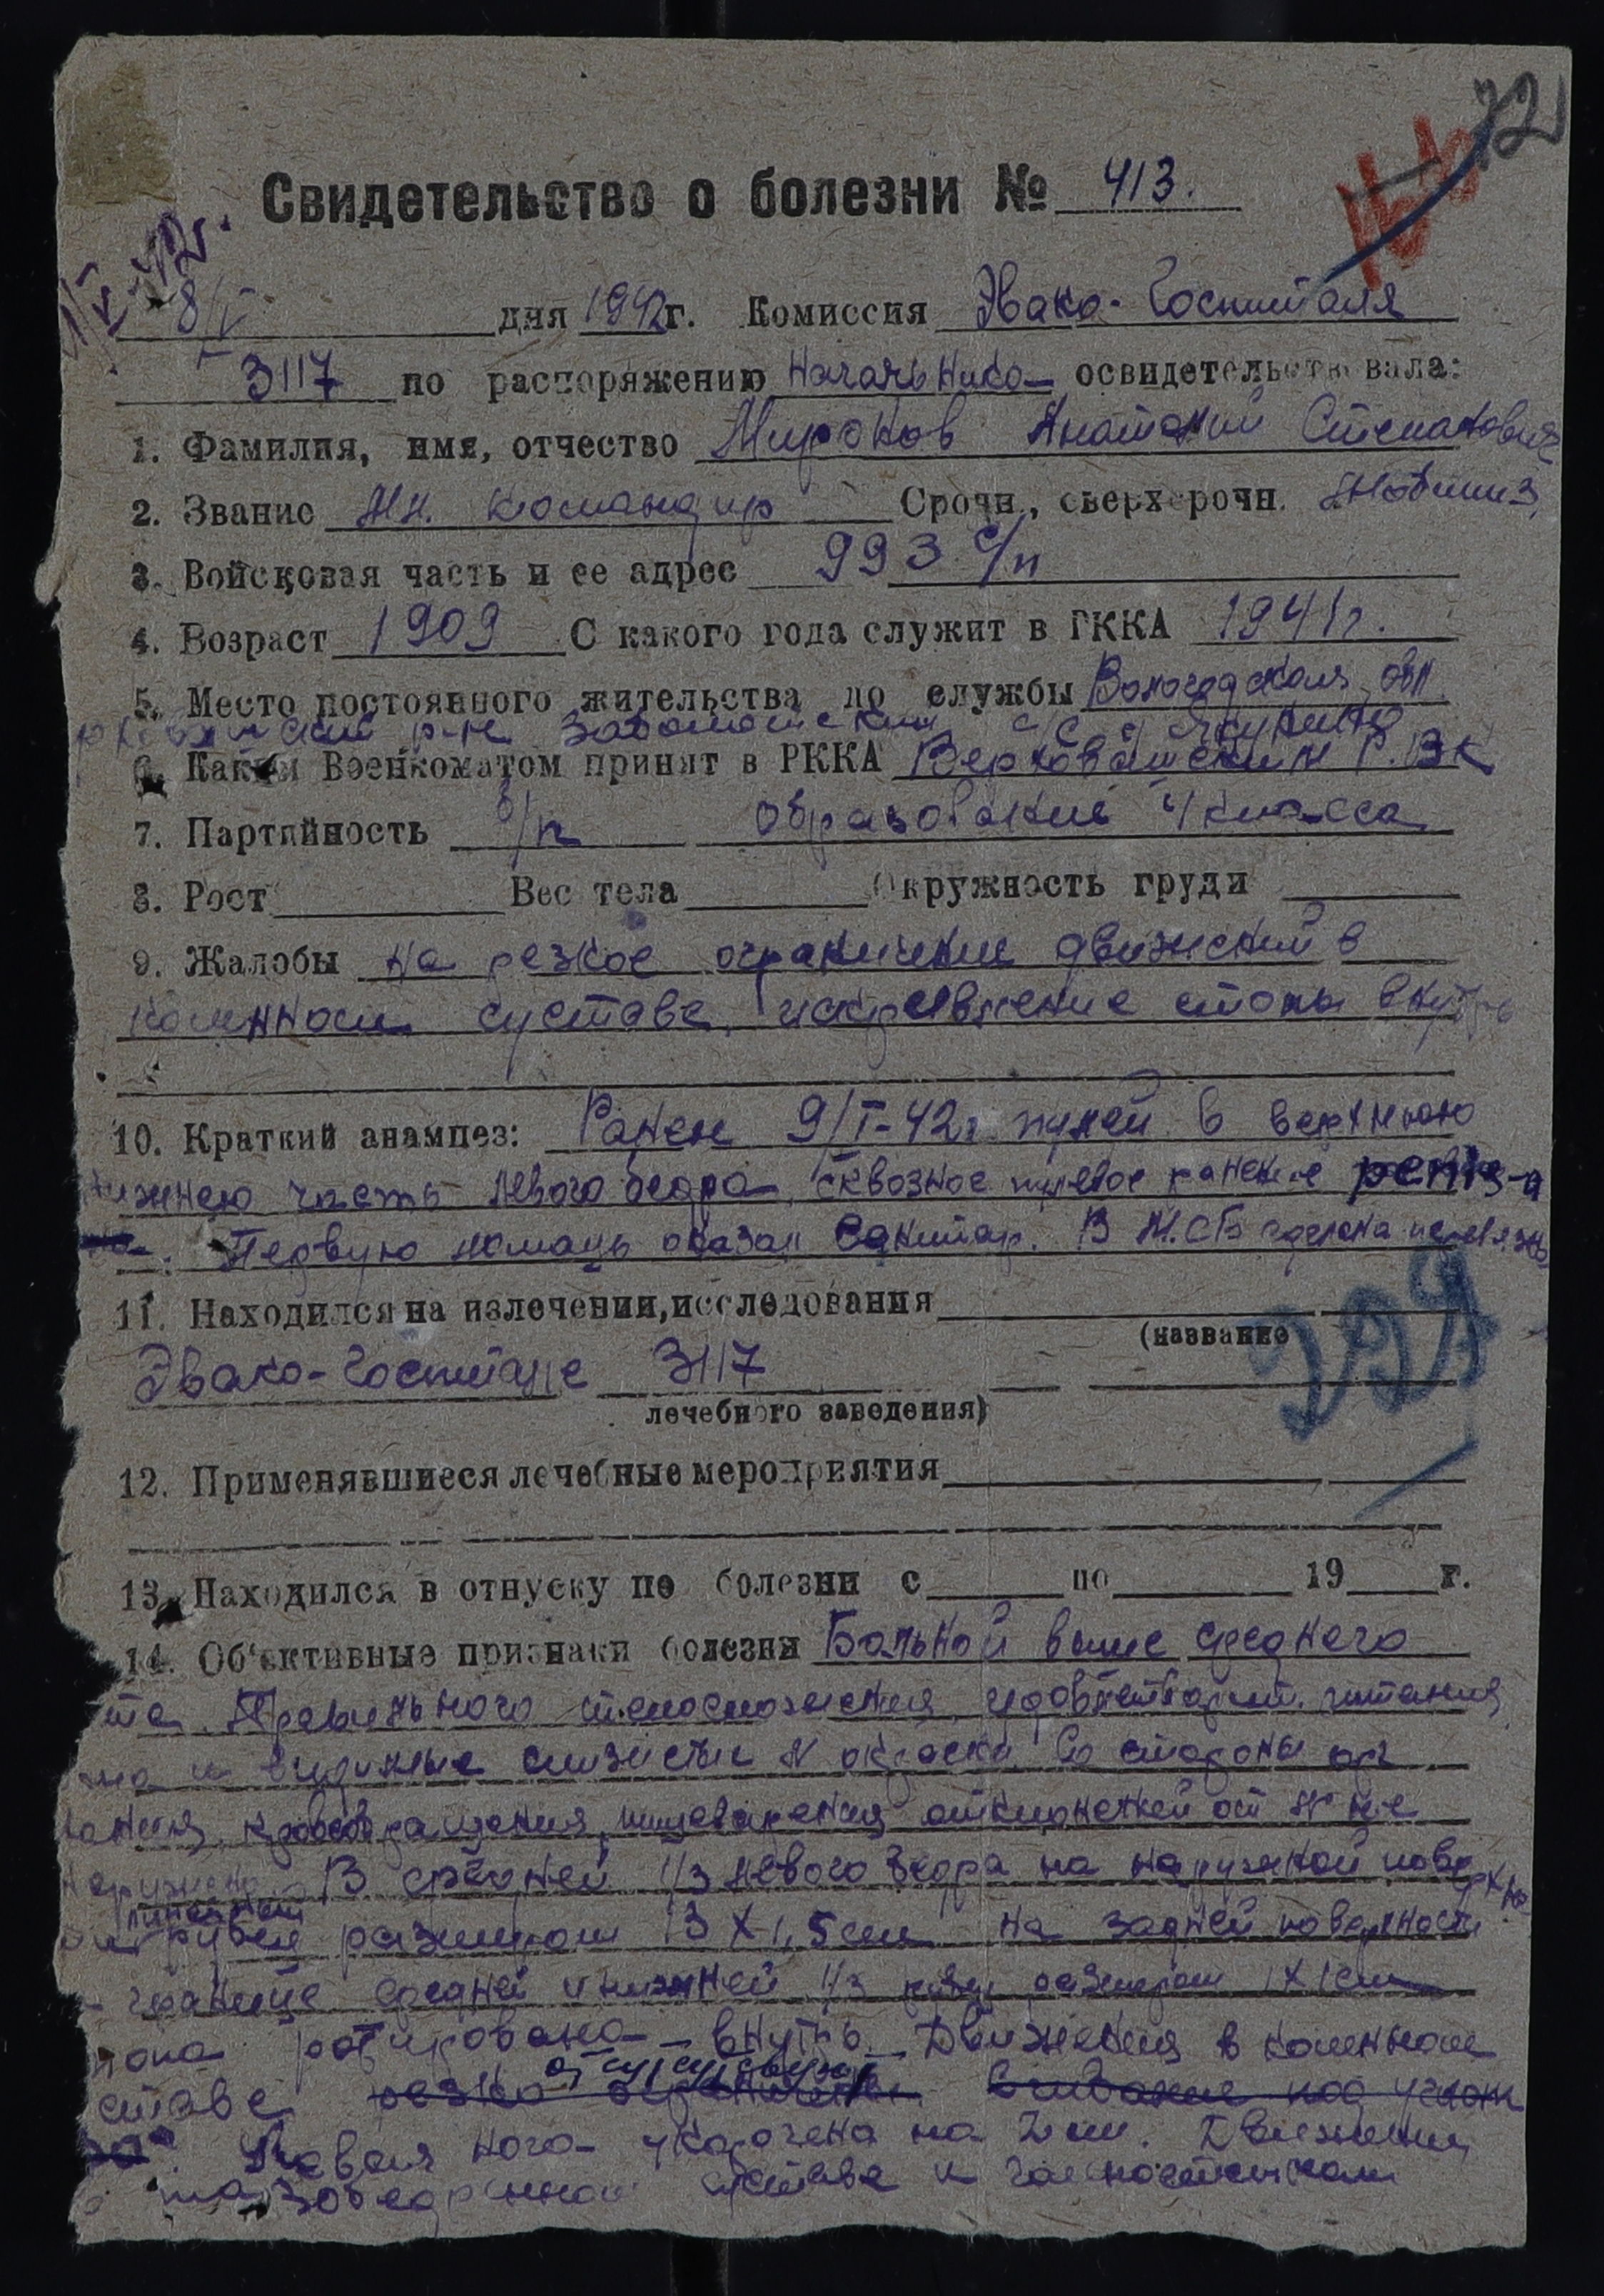 72
Свидетельство о болезни № 413.
8/V дня 1942г. Комиссия Эвако-Госпиталя
3117 по распоряжению Начальника освидетельствовала:
1. Фамилия, имя, отчество Миронов Анатолий Степанович
2. Звание Мл. командир Срочн., сверхсрочн.
3. Войсковая часть и ее адрес 993 с/п
4. Возраст 1909 С какого года служит в РККА 1941г.
5. Место постоянного жительства до службы Вологодская обл.
р-н с/с д.
6. Каким Военкоматом принят в РККА Верховажским Р.В.К
7. Партийность б/п образование 4 класса
8. Рост Вес тела Окружность груди
9. Жалобы на резкое ограничение движений в
коленном суставе, искривление стопы внутрь
10. Краткий анамнез: Ранен 9/I-42г пулей в верхнюю
нижнею часть левого бедра, сквозное пулевое ранение
Первую помощь оказал санитар. В М.С.Б сделана перевязка
11. Находился на излечении, исследования
(название
Эвако-Госпитале 3117
лечебного заведения)
12. Применявшиеся лечебные мероприятия
13. Находился в отпуску по болезни с по 19 г.
14. Об'ективные признаки болезни Больной выше среднего
та. Правильного телосложения, удовлетворит. питания,
жа и видимые слизистые N окраски. Со стороны орг.
хания, кровообращения, пищеварения отклонений от N не
наружено. В средней 1/3 левого бедра на наружной поверхно
линейный
рубец размером 13 X 1,5 см на задней поверхности
границе средней и нижней 1/3 рубец размером 1 X 1 см
топа ротирована внутрь. Движения в коленном
отсутствуют
ставе резко ограничены. Сгибание под углом
Левая нога укорочена на 2 см. Движения
тазобедренном суставе и голеностопном